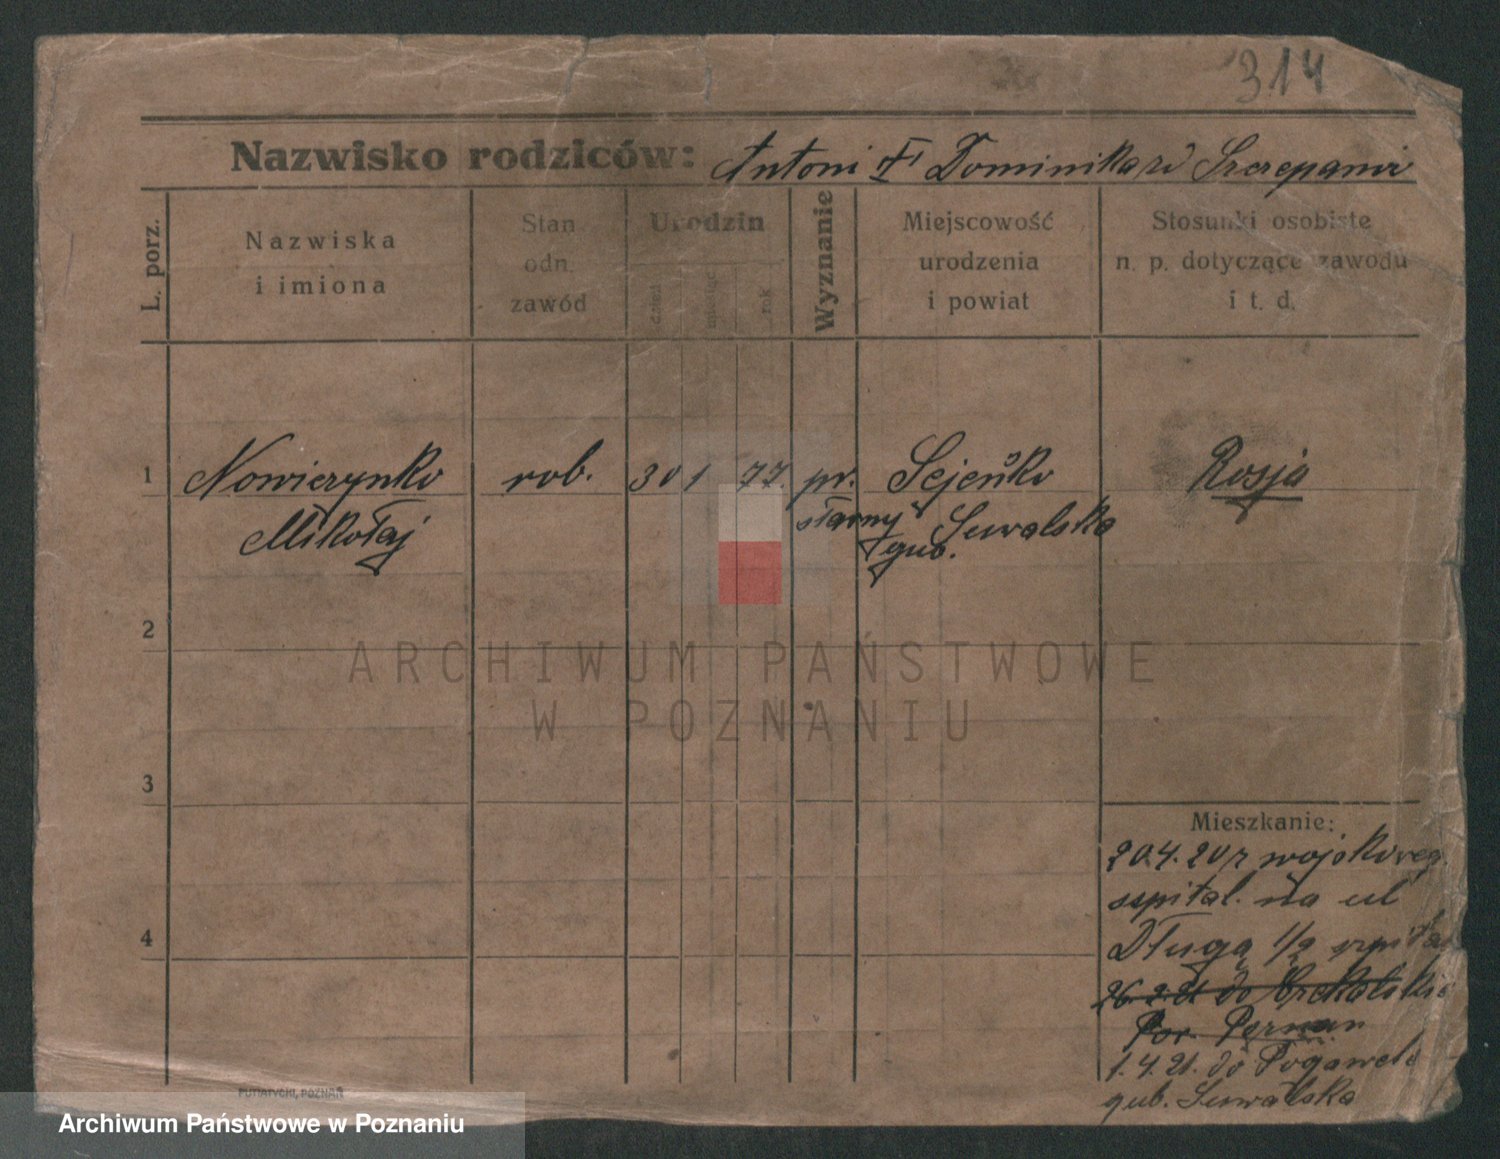 314
Nazwisko rodziców: Antoni Dominika
L. porz.
Nazwiska
i imiona
Stan
odn.
zawód
Urodzin
dzień
miesiąc
rok
Wyznanie
Miejscowość
urodzenia
i powiat
Stosunki osobiste
n. p. dotyczące zawodu
i t. d.
1 rob. 30 1 77. pr. Rosja
Mikołaj sławny gub. Suwalska
2
ARCHIWUM PAŃSTWOWE
W POZNANIU
3
Mieszkanie:
20.4.20 r
szpital. na ul
Długą 1/2
26.2.21 do
1.4.21. do
gub. Suwalska
4
PUTIATYCKI, POZNAŃ
Archiwum Państwowe w Poznaniu